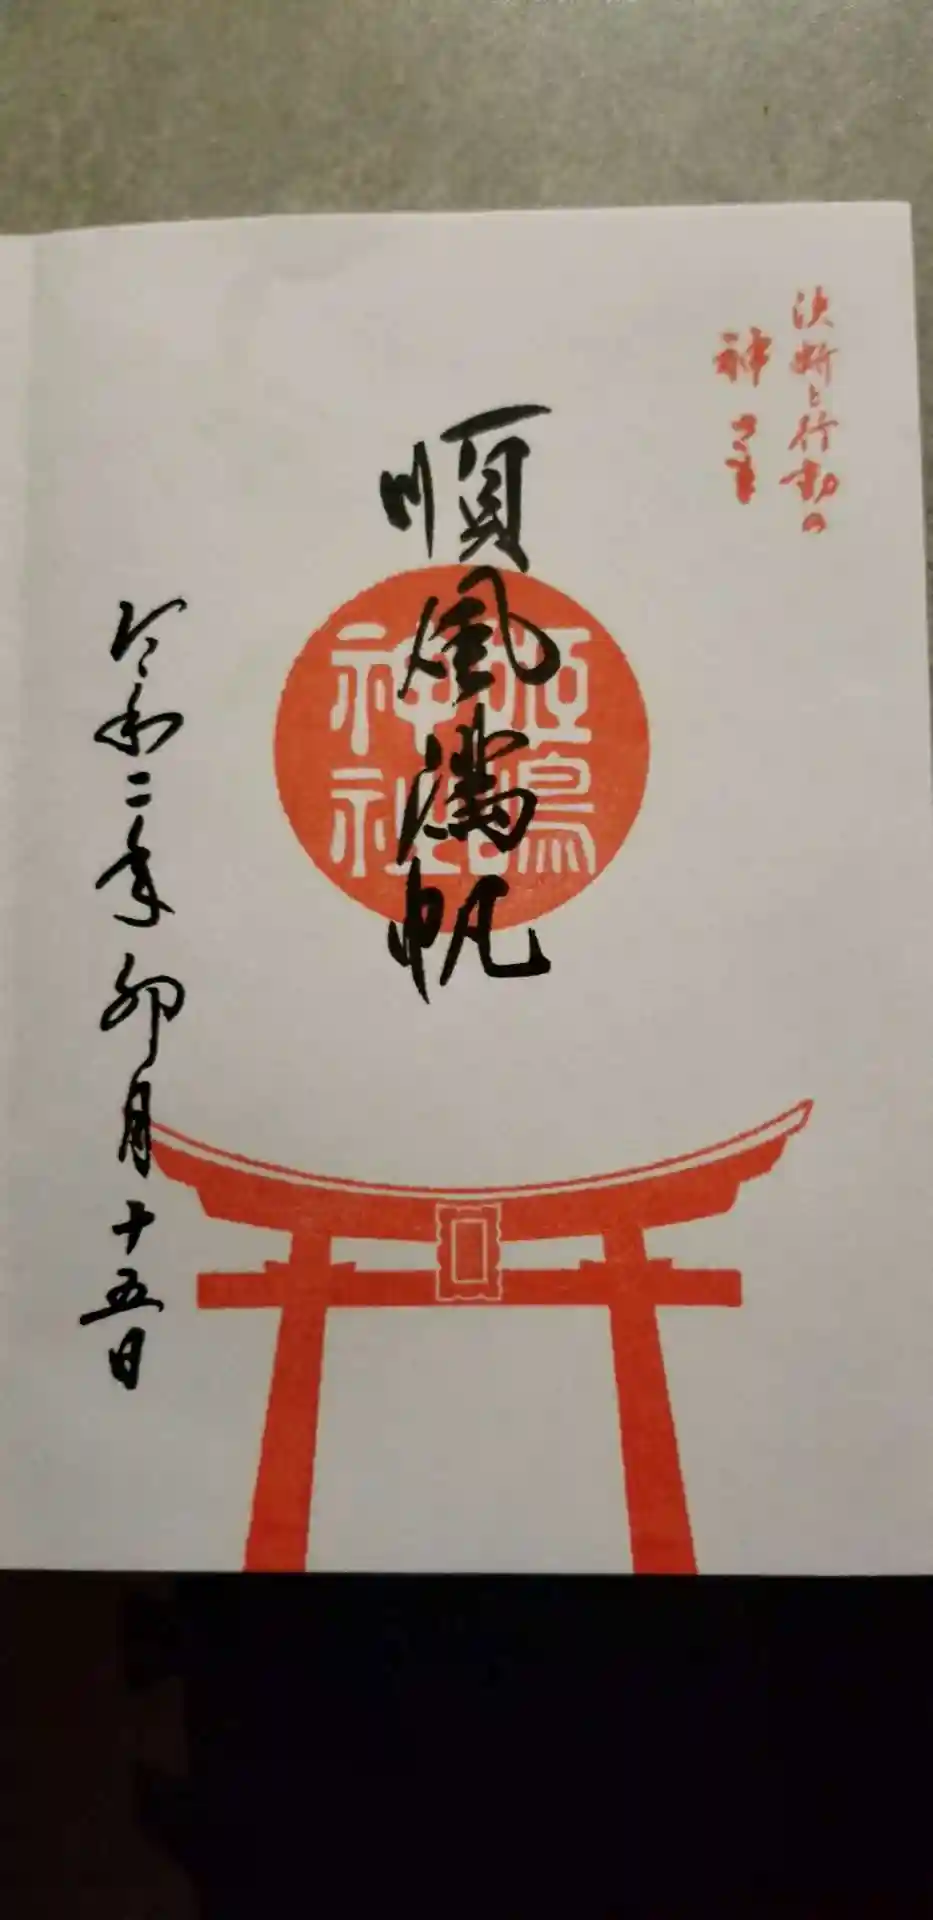 決断と行動の
神さま
順風満帆
姫嶋
神社
令和二年卯月十五日